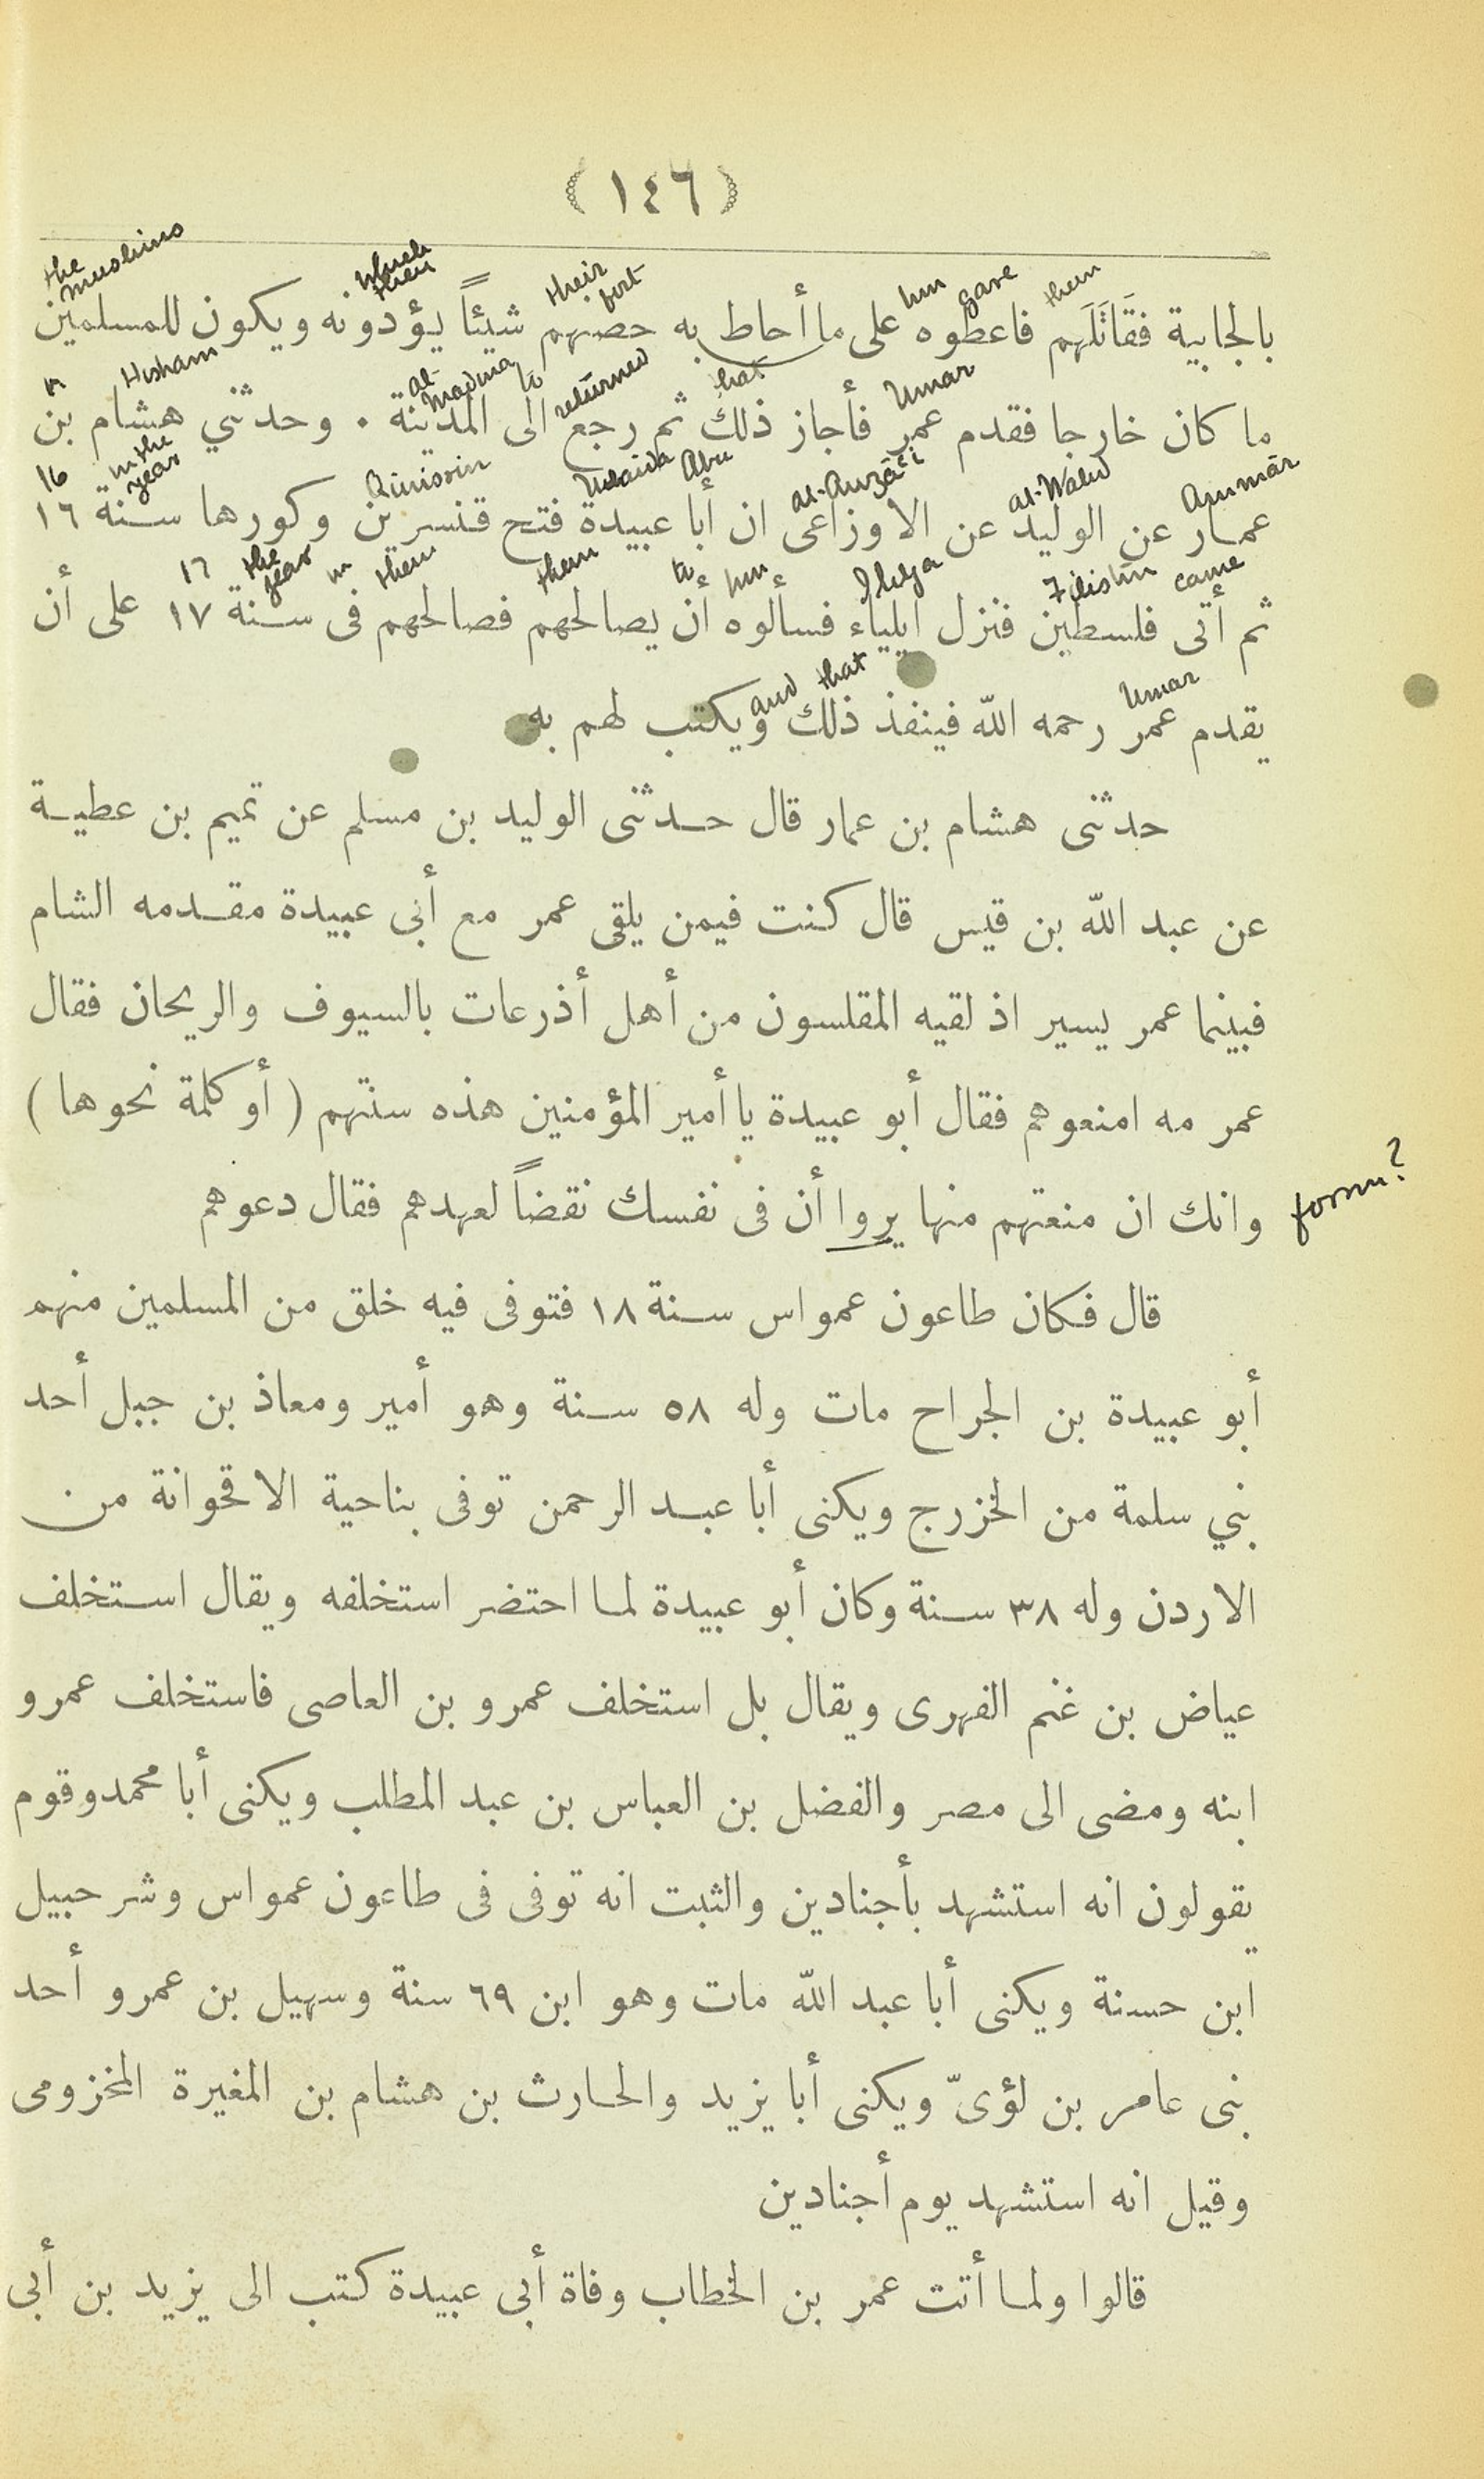 (١٤٦)
the muslims which them their fort him gave them
بالجابية فقَاتَلَهم فاعطوه على ما أحاط به حصنهم شيئاً يؤدونه ويكون للمسلمين
Hisham al-Madina to returned that Umar
ما كان خارجا فقدم عمر فأجاز ذلك ثم رجع الى المدينة . وحدثني هشام بن
16 in the year Qinissin Ubaida Abu al-Auzā'i al-Walid Ammār
عمار عن الوليد عن الاوزاعى ان أبا عبيدة فتح قنسرين وكورها سنة ١٦
17 the year in them them to him Iliya Filistin came
ثم أتى فلسطين فنزل ايلياء فسألوه أن يصالحهم فصالحهم فى سنة ١٧ على أن
and that Umar
يقدم عمر رحمه الله فينفذ ذلك ويكتب لهم به
حدثنى هشام بن عمار قال حدثنى الوليد بن مسلم عن تميم بن عطية
عن عبد الله بن قيس قال كنت فيمن يلقى عمر مع أبى عبيدة مقدمه الشام
فبينما عمر يسير اذ لقيه المقلسون من أهل أذرعات بالسيوف والريحان فقال
عمر مه امنعوهم فقال أبو عبيدة يا أمير المؤمنين هذه سنتهم ( أو كلمة نحوها )
وانك ان منعتهم منها يروا أن فى نفسك نقضاً لعهدهم فقال دعوهم
form?
قال فكان طاعون عمواس سنة ١٨ فتوفى فيه خلق من المسلمين منهم
أبو عبيدة بن الجراح مات وله ٥٨ سنة وهو أمير ومعاذ بن جبل أحد
بني سلمة من الخزرج ويكنى أبا عبد الرحمن توفى بناحية الاقحوانة من
الاردن وله ٣٨ سنة وكان أبو عبيدة لما احتضر استخلفه ويقال استخلف
عياض بن غنم الفهرى ويقال بل استخلف عمرو بن العاصى فاستخلف عمرو
ابنه ومضى الى مصر والفضل بن العباس بن عبد المطلب ويكنى أبا محمد وقوم
يقولون انه استشهد بأجنادين والثبت انه توفى فى طاعون عمواس وشرحبيل
ابن حسنة ويكنى أبا عبد الله مات وهو ابن ٦٩ سنة وسهيل بن عمرو أحد
بنى عامر بن لؤىّ ويكنى أبا يزيد والحارث بن هشام بن المغيرة المخزومى
وقيل انه استشهد يوم أجنادين
قالوا ولما أتت عمر بن الخطاب وفاة أبى عبيدة كتب الى يزيد بن أبى